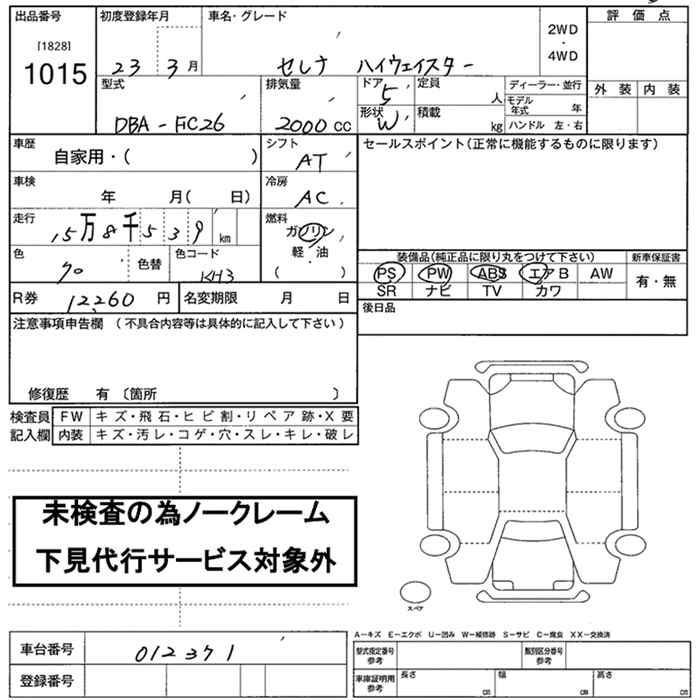 出品番号 初度登録年月 車名・グレード 評価点
[1828]
1015
23 3月 セレナ ハイウェイスター
2WD
・
4WD
型式 排気量 ドア 定員 ディーラー・並行 外装 内装
5 人 モデル年式 年
DBA-FC26 2000cc 形状 W 積載 kg ハンドル 左・右
車歴 自家用・( ) シフト AT セールスポイント(正常に機能するものに限ります)
車検 年 月( 日) 冷房 AC
走行 15万8千539km 燃料 ガソリン
軽・油
( )
色 クロ 色替 色コード KH3
装備品(純品に限り丸をつけて下さい) 新車保証書
PS PW ABS エアB AW 有・無
SR ナビ TV カワ
R券 12,260円 名変期限 月 日 後日品
注意事項申告欄 (不具合内容等は具体的に記入して下さい)
修復歴 有 〔箇所 〕
検査員記入欄 FW キズ・飛石・ヒビ割・リペア跡・X要
内装 キズ・汚レ・コゲ・穴・スレ・キレ・破レ
未検査の為ノークレーム
下見代行サービス対象外
スペア
A-キズ E-エクボ U-凹み W-補修跡 S-サビ C-腐食 XX-交換済
車台番号 012371 型式指定番号 参考 類別区分番号 参考
登録番号 車庫証明用 参考 長さ cm 幅 cm 高さ cm